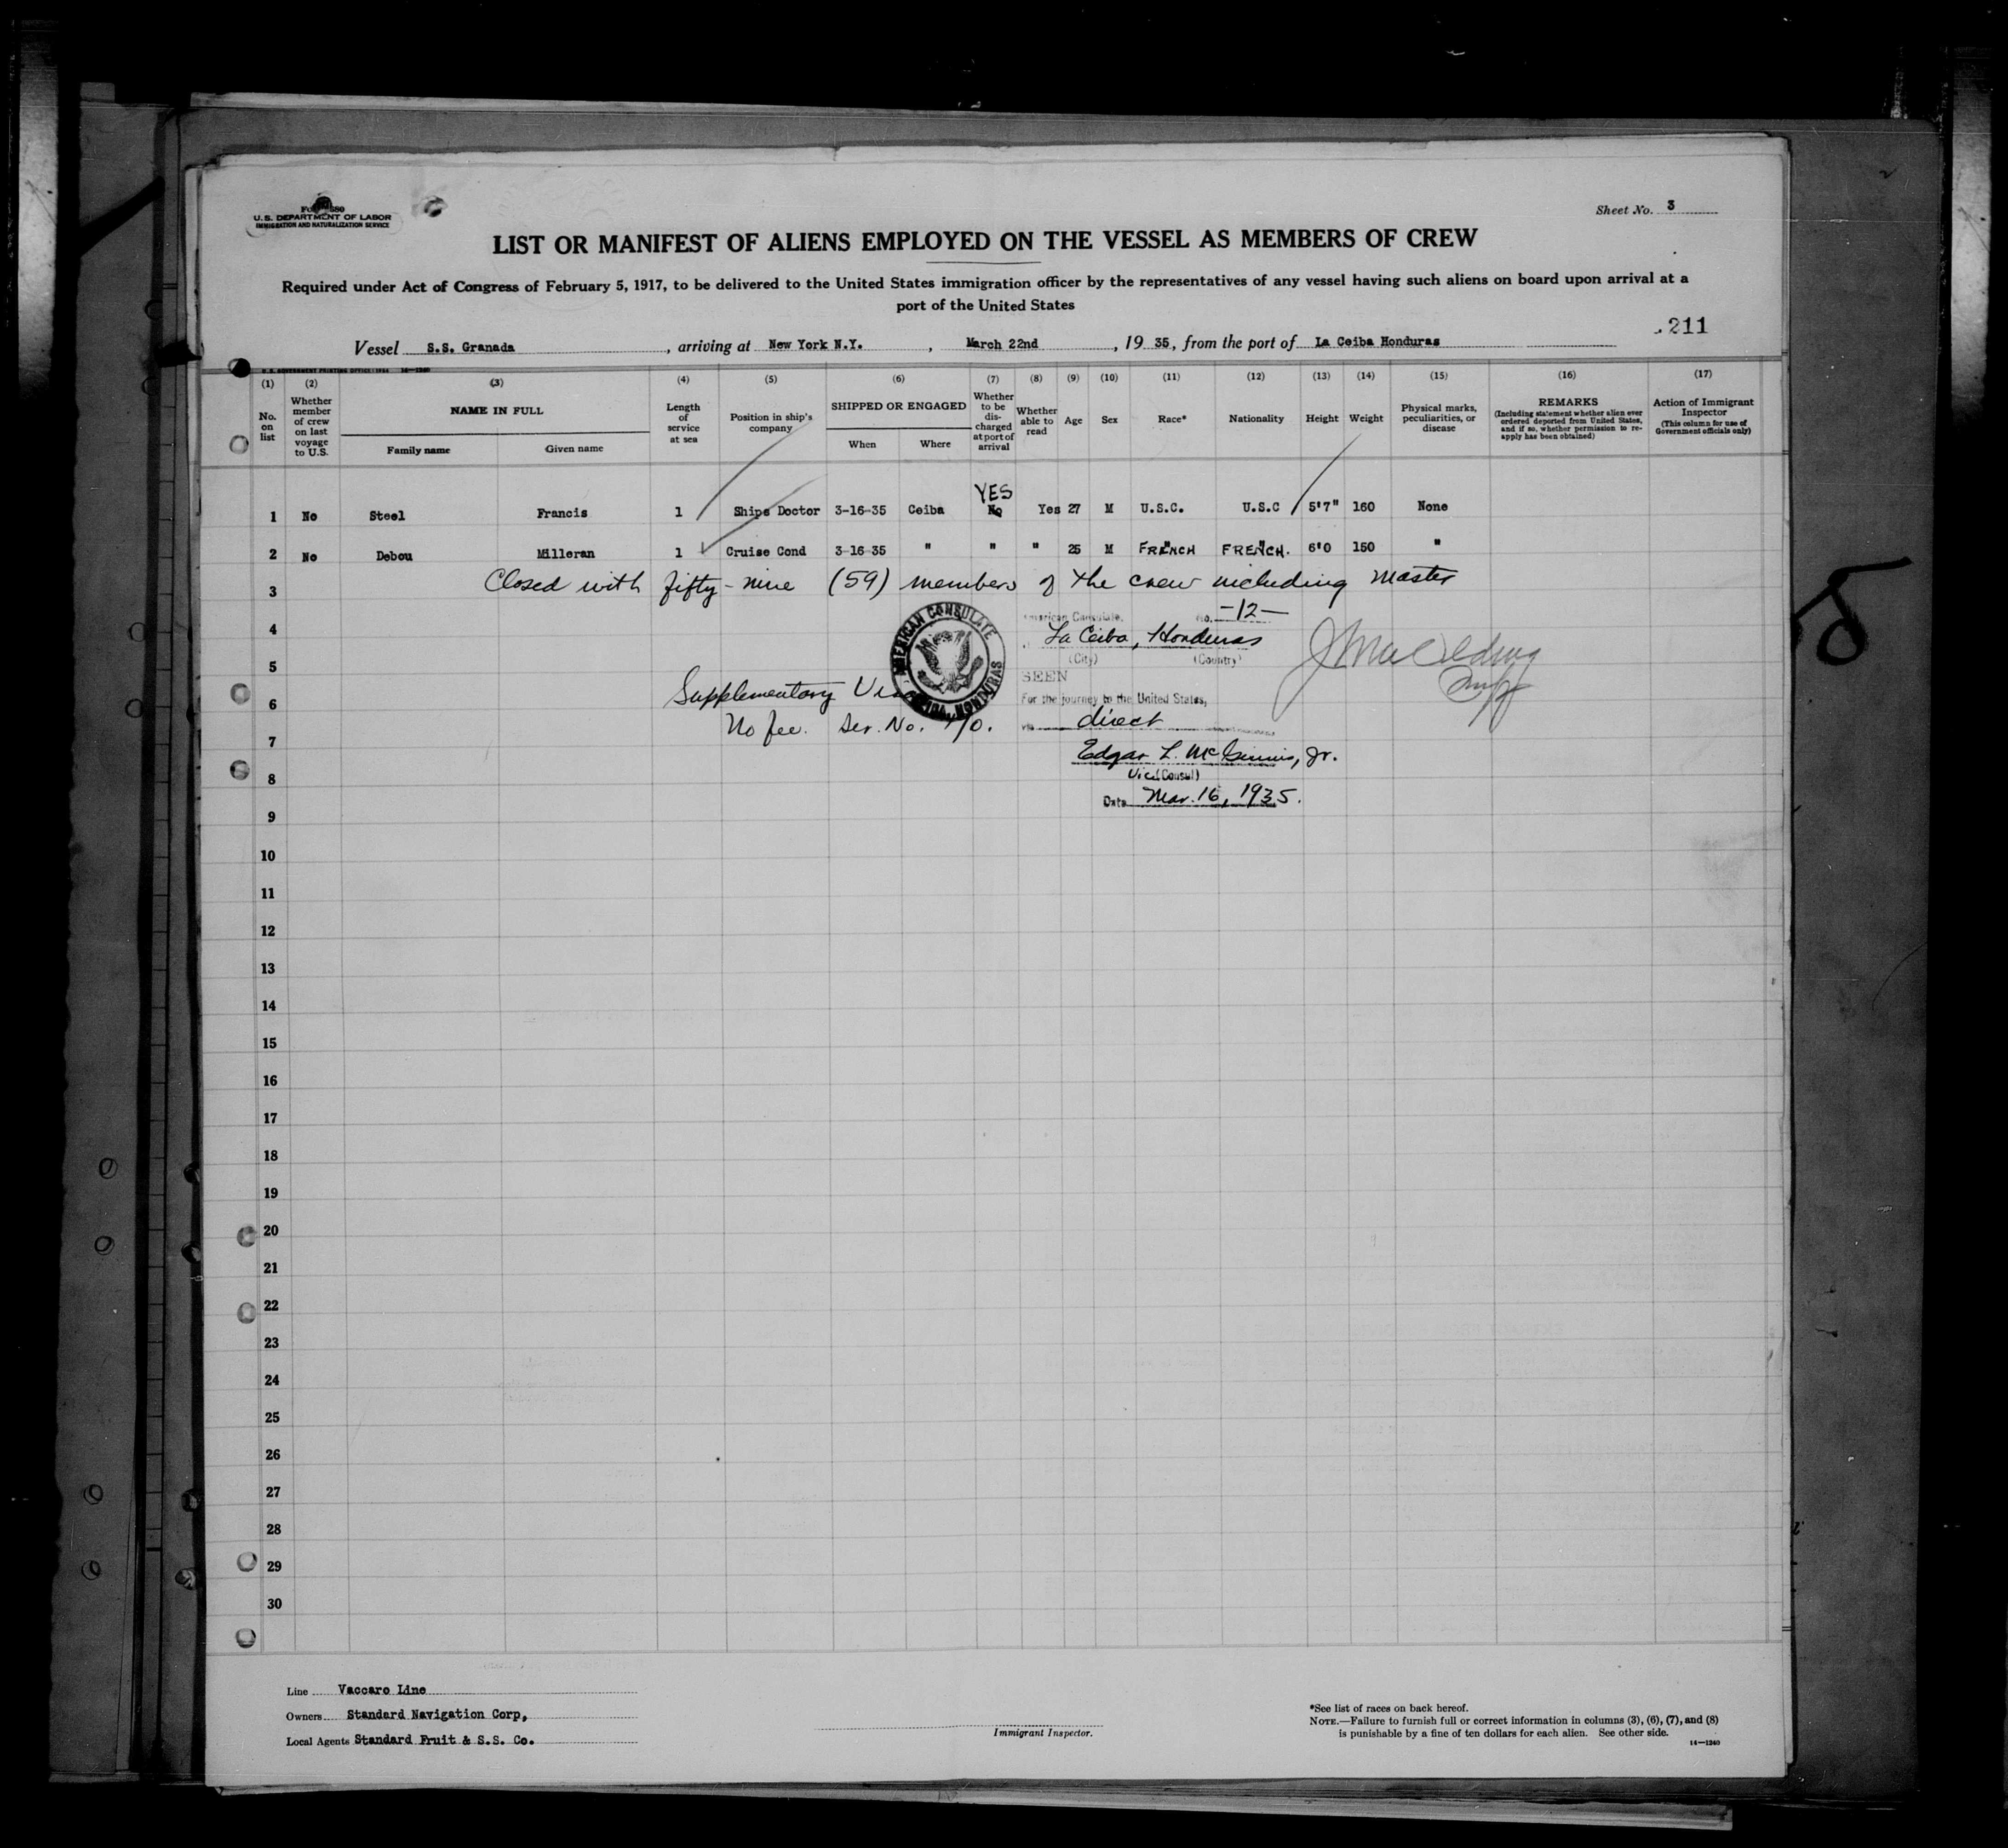 U.S. DEPARTMENT OF LABOR
IMMIGRATION AND NATURALIZATION SERVICE
Sheet No. 3
LIST OR MANIFEST OF ALIENS EMPLOYED ON THE VESSEL AS MEMBERS OF CREW
Required under Act of Congress of February 5, 1917, to be delivered to the United States immigration officer by the representatives of any vessel having such aliens on board upon arrival at a
port of the United States
211
Vessel S.S. Granada, arriving at New York N.Y., March 22nd, 19 35, from the port of La Ceiba Honduras
U.S. GOVERNMENT PRINTING OFFICE: 1934 14—1240
(1) (2) (3) (4) (5) (6) (7) (8) (9) (10) (11) (12) (13) (14) (15) (16) (17)
No. on list
Whether member of crew on last voyage to U.S.
NAME IN FULL
Family name Given name
Length of service at sea
Position in ship's company
SHIPPED OR ENGAGED
When Where
Whether to be discharged at port of arrival
Whether able to read
Age
Sex
Race*
Nationality
Height
Weight
Physical marks, peculiarities, or disease
REMARKS
(Including statement whether alien ever ordered deported from United States, and if so, whether permission to re-apply has been obtained)
Action of Immigrant Inspector
(This column for use of Government officials only)
YES
1 No Steel Francis 1 Ships Doctor 3-16-35 Ceiba No Yes 27 M U.S.C. U.S.C 5'7" 160 None
2 No Debou Milleran 1 Cruise Cond 3-16-35 " " " 25 M FRENCH FRENCH. 6'0 150 "
3 Closed with fifty-nine (59) members of the crew including Master
American Consulate, No. -12-
4 La Ceiba, Honduras
(City) (Country)
AMERICAN CONSULATE
HONDURAS
5 SEEN
6 Supplementary
For the journey to the United States,
No fee. Ser. No.
via direct
7
Edgar L. McGinnis, Jr.
8 Vice (Consul)
Date Mar. 16, 1935.
9
10
11
12
13
14
15
16
17
18
19
20
21
22
23
24
25
26
27
28
29
30
Line Vaccaro Line
Owners Standard Navigation Corp,
Local Agents Standard Fruit & S.S. Co.
Immigrant Inspector.
*See list of races on back hereof.
NOTE.—Failure to furnish full or correct information in columns (3), (6), (7), and (8)
is punishable by a fine of ten dollars for each alien. See other side.
14—1240